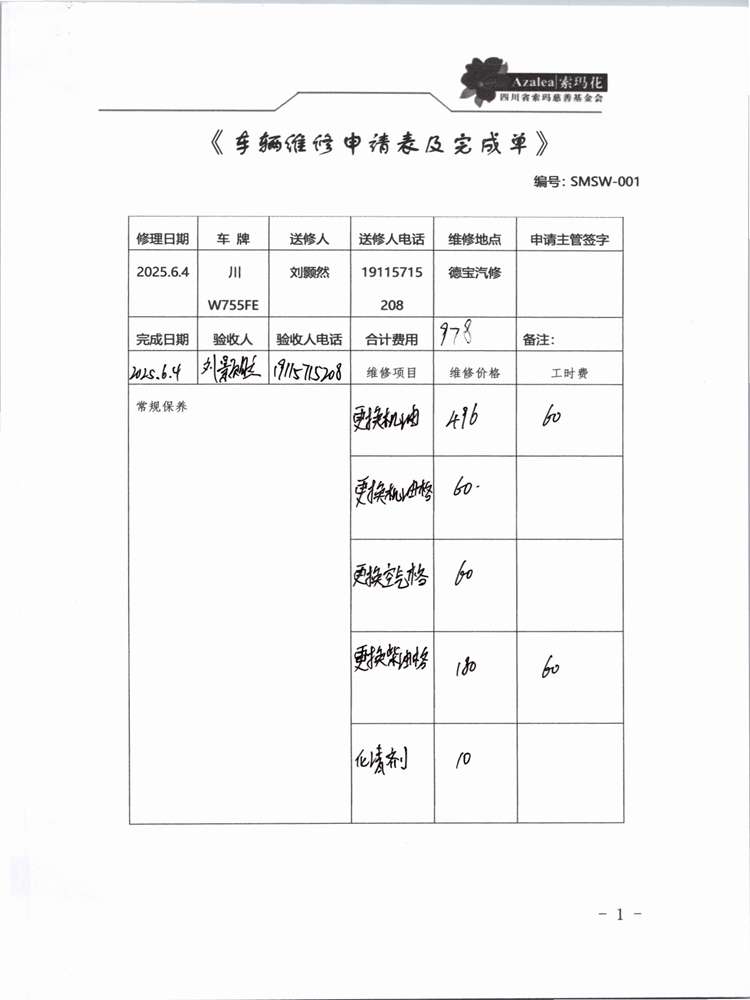 Azalea|索玛花
四川省索玛慈善基金会
《车辆维修申请表及完成单》
编号: SMSW-001
修理日期 车 牌 送修人 送修人电话 维修地点 申请主管签字
2025.6.4 川 W755FE 刘颢然 19115715208 德宝汽修
完成日期 验收人 验收人电话 合计费用 978 备注:
2025.6.4 刘 19115715208 维修项目 维修价格 工时费
常规保养 更换机油 496 60
更换机油格 60.
更换空气格 60
更换柴油格 180 60
化清剂 10
- 1 -